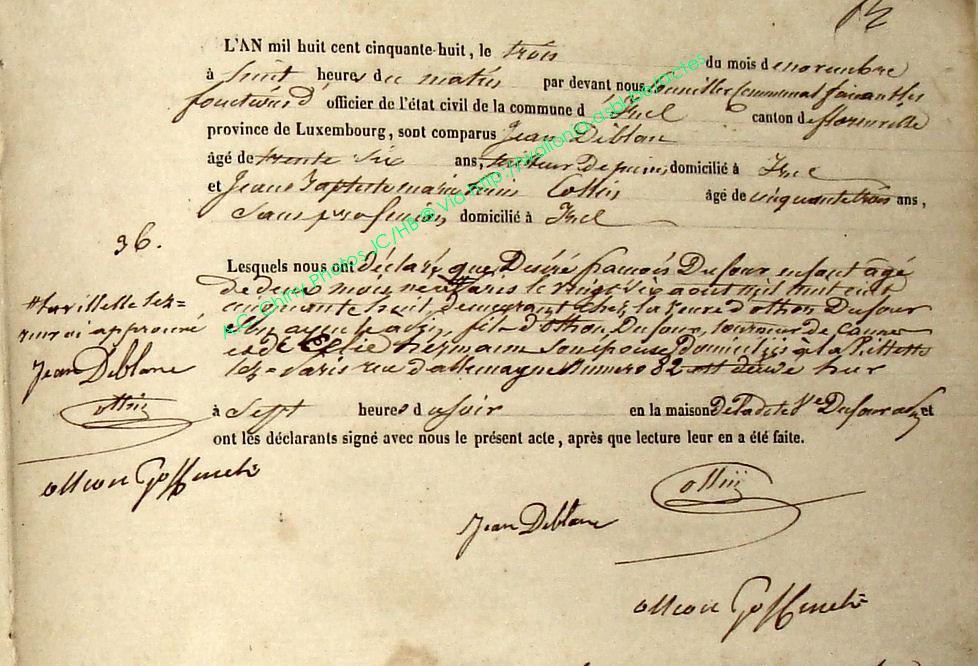 L'AN mil huit cent cinquante-huit, le trois du mois de novembre
à huit heures du matin par devant nous conseiller communal faisant les
fonctions d' officier de l'état civil de la commune d' Izel canton de florenville
province de Luxembourg, sont comparus Jean Deblanc
âgé de trente six ans, domicilié à Izel
et Jean Baptiste marie Collin âgé de cinquante trois ans,
sans profession domicilié à Izel
36.
Lesquels nous ont déclaré que Désiré françois Dufour enfant âgé
de deux mois, né à Paris le vingt six aout mil huit cent
cinquante huit, demeurant chez la veuve d'othon Dufour
son ayeule fils d'othon Dufour, tourneur de cannes
et de Hermann son épouse, domiciliés à la Villette
lez=Paris rue d'allemagne Numero 82 est décédé hier
à Sept heures du soir en la maison De la dite Ve Dufour et
ont les déclarants signé avec nous le présent acte, après que lecture leur en a été faite.
approuvé
Jean Deblanc
Collin
Goffinet
Collin
Jean Deblanc
Goffinet
AC Chiny Photos JC/HB @ Via http://wallonia.asbl.be/actes